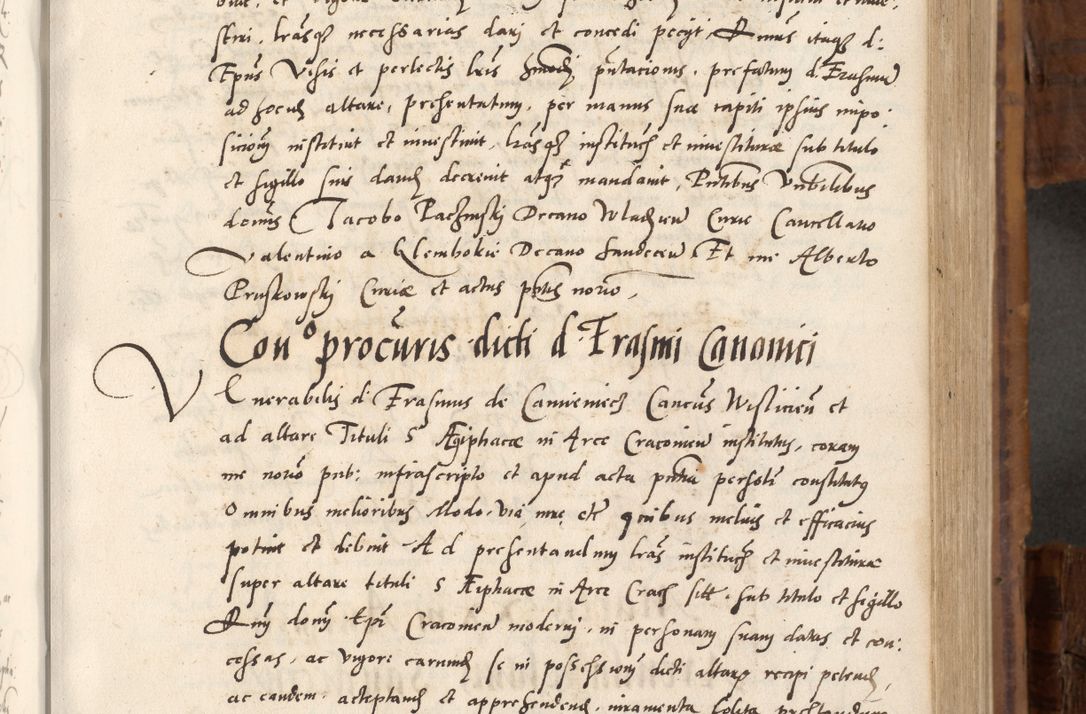 stiri, lrãsqȝ necessarias dari et concedi peciit, Rmus itaqȝ d:
Epus Visis et perlectis lris hmodi pñtacionis, prefatum d. Erasmũ
ad hocuȝ altare, presentatum, per manus sue capiti ipsius impo:
sicionȝ instituit et investiuit, lrasqȝ institucȝ et inuestiturae sub titulo
et sigillo suis dandȝ decreuit atqȝ mandauit, Pñtibus Vnbilibus
domĩs Jacobo Paczinskj Decano Wladicien Curie Cancellario
Valentino a Klembokie Decano Sandecen Et me Alberto
Pruskowskj Curiae et actus pñtis norio,
Con.o procuris dicti d. Erasmi Canonici
Venerabilis d. Erasmus de Camieniecȝ Cancus Wislicieñ et
ad altare Tituli S Aegiphaciae in Arce Cracovien institutus, coram
me norio pub: infrascripto et apud acta pñtia personlr constitutȝ
Omnibus melioribus Modo, via, iure, etc quibus melius et efficacius
potuit et debuit Ad presentandum lras institucȝ et inuestiturae
super altare tituli S Aegiphaciae in Arce Cracȝ sitt. sub titulo et sigillo
Rmj domj Epi Cracovien modernj, in personam suam datas et con:
cessas, ac vigore earundȝ se in possessionȝ dicti altarȝ recipi petendȝ,
ac eandem, acceptandȝ et apprehendendȝ, iuramenta solita prestandum